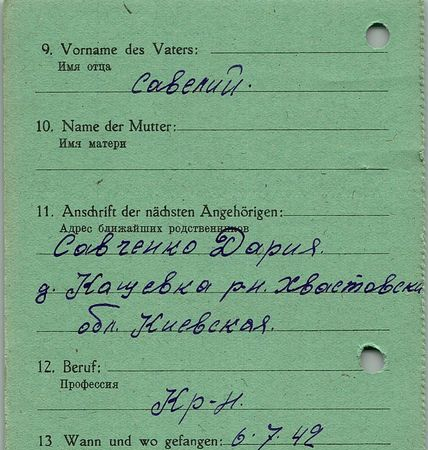 9. Vorname des Vaters:
Имя отца
Савелий.
10. Name der Mutter:
Имя матери
11. Anschrift der nächsten Angehörigen:
Адрес ближайших родственников
Савченко Дария.
д. Кащевка р-н. Хвастовски
обл. Киевская.
12. Beruf:
Профессия
Кр-н.
13 Wann und wo gefangen: 6.7.42